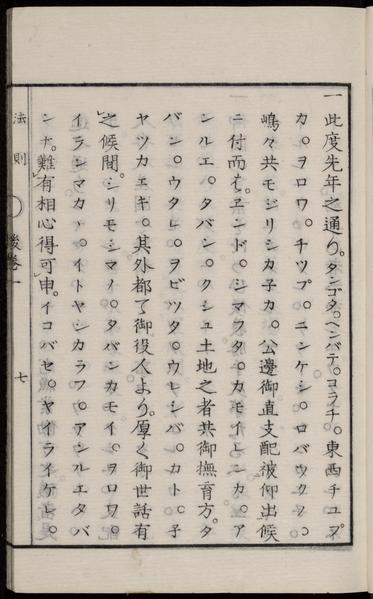 一此度先年之通り。タンゴタ。ヘンバテ。コラチ。東西チユプ
カ。ヲロワ。チツプ。ニンケシ。ロバウクツ。
嶋々共モジリシカ子カ。公邊御直支配被仰出候
ニ付而は。ヱンド。シマフタ。カモイトンカ。ア
シルエ。タバン。クシュ土地之者共御撫育方。タ
バン。ウタレ。ヲビツタ。ウレシバ。カト。子
ヤツカエキ。其外都て御役人より。厚く御世話有
之候間。シリモシマノ。タバンカモイ。ヲロワ。
イラシマカヽ。イトヤシカラフ。アンルエタバ
ンナ。難有相心得可申。イコバセ。ヤイライケレ。
法則
後卷一
七